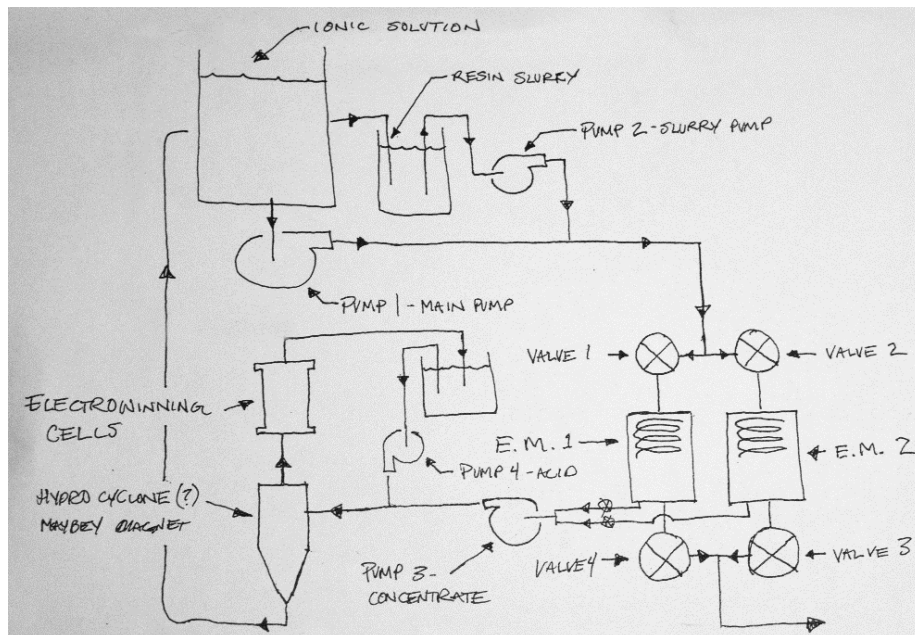 IONIC SOLUTION
RESIN SLURRY
PUMP 2-SLURRY PUMP
PUMP 1-MAIN PUMP
VALVE 1
VALVE 2
ELECTROWINNING
CELLS
PUMP 4-ACID
E.M.1
E.M. 2
HYDRO CYCLONE(?)
MAYBEY MAGNET
PUMP 3-
CONCENTRATE
VALVE4
VALVE 3